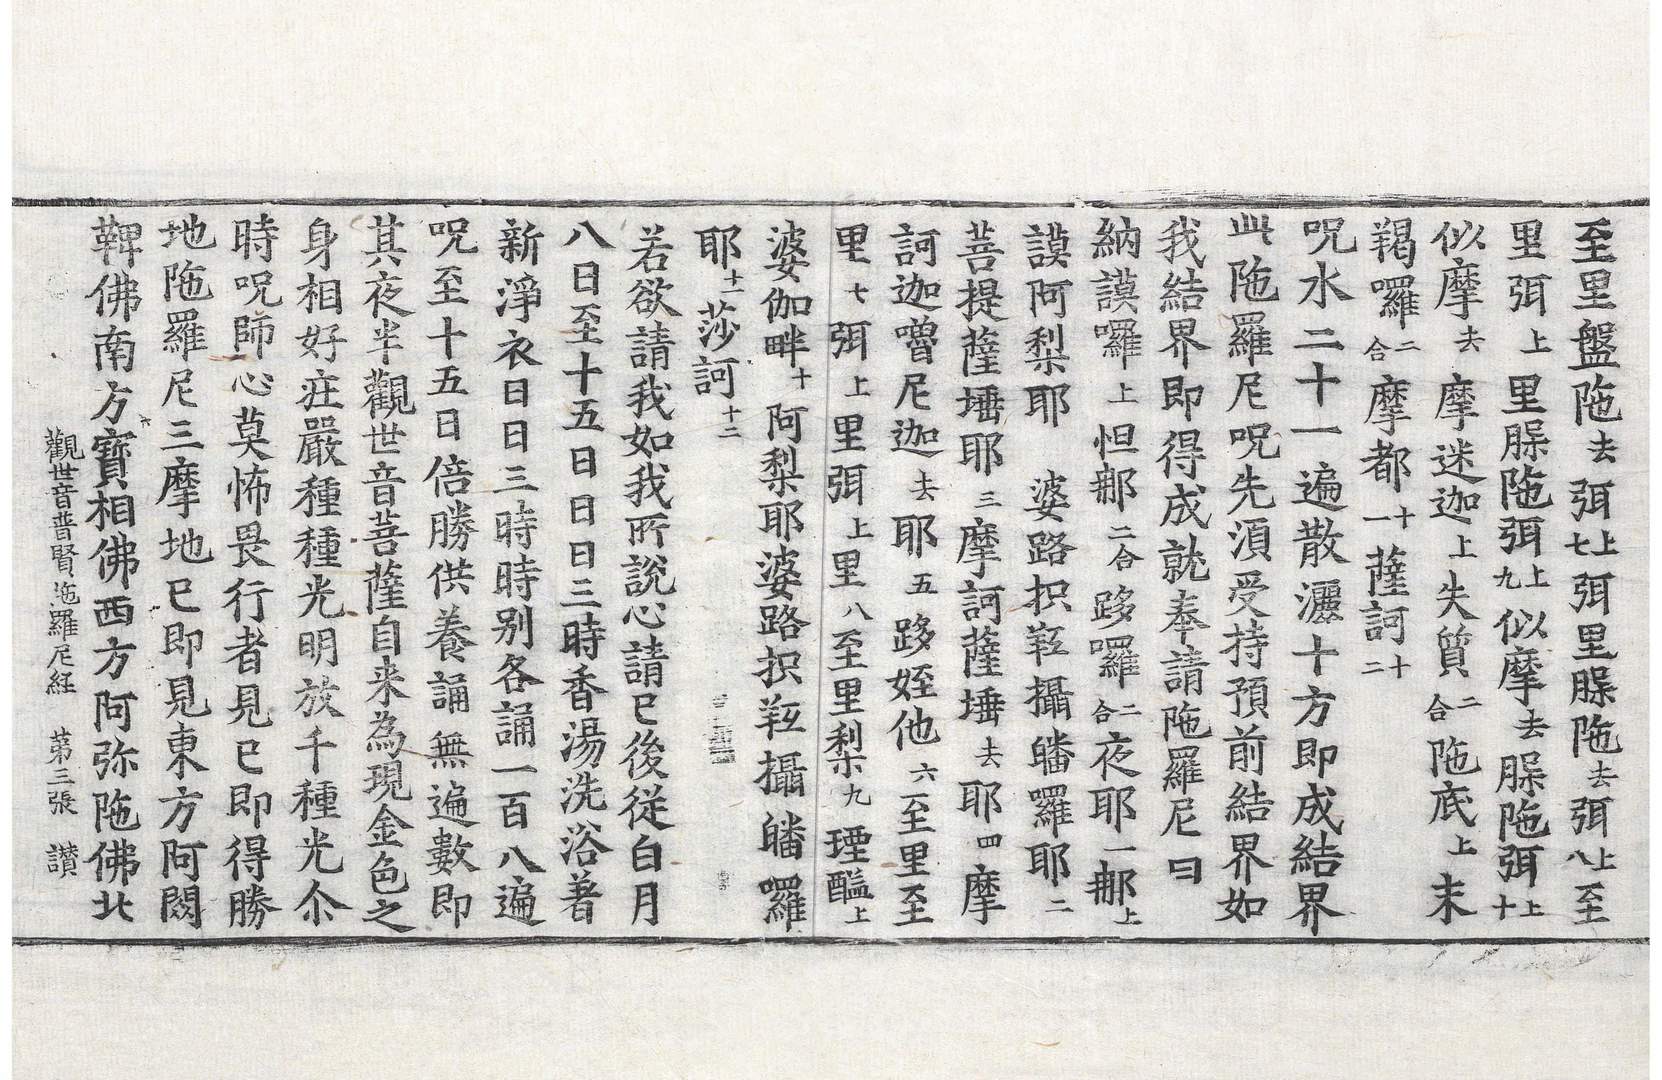 至里盤陁去弭上七弭里𦜆陁去弭上八至
里弭上里𦜆陁弭上九似摩去𦜆陁弭上十
似摩去摩迷迦上失質二合陁底上末
羯囉二合摩都十一薩訶十二
呪水二十一遍散灑十方即成結界
此陁羅尼呪先湏受持預前結界如
我結界即得成就奉請陁羅尼曰
納謨囉上怛那二合跢囉二合夜耶一那上
謨阿梨耶 婆路抧羝攝皤囉耶二
菩提薩埵耶三摩訶薩埵去耶四摩
訶迦嚕尼迦去耶五跢姪他六至里至
里七弭上里弭上里八至里梨九𤨏醯上
婆伽畔十阿梨耶婆路抧羝攝皤囉
耶十一莎訶十二
若欲請我如我所說心請已後從白月
八日至十五日日日三時香湯洗浴著
新淨衣日日三時時別各誦一百八遍
呪至十五日倍勝供養誦無遍數即
其夜半觀世音菩薩自来為現金色之
身相好㽵嚴種種光明放千種光尒
時呪師心莫怖畏行者見已即得勝
地陁羅尼三摩地已即見東方阿閦
鞞佛南方寶相佛西方阿弥陁佛北
觀世音普賢陁羅尼経 第三張 讃